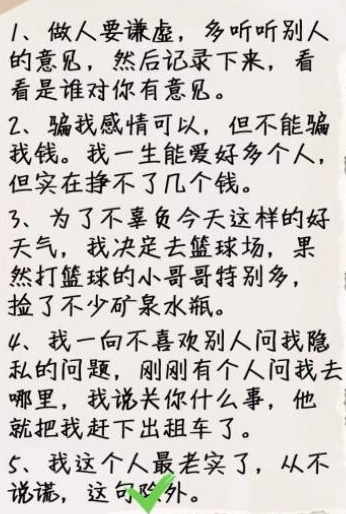 1、做人要谦虚，多听听别人
的意见，然后记录下来，看
看是谁对你有意见。
2、骗我感情可以，但不能骗
我钱。我一生能爱好多个人，
但实在挣不了几个钱。
3、为了不辜负今天这样的好
天气，我决定去篮球场，果
然打篮球的小哥哥特别多，
捡了不少矿泉水瓶。
4、我一向不喜欢别人问我隐
私的问题，刚刚有个人问我去
哪里，我说关你什么事，他
就把我赶下出租车了。
5、我这个人最老实了，从不
说谎，这句除外。